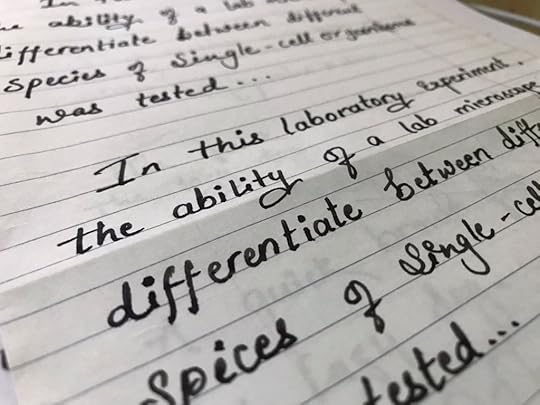 In
the ability of a lab
differentiate between different
species of single-cell organisms
was tested...
In this laboratory experiment,
the ability of a lab microscope
differentiate between diff
spices of single-cell
tested...